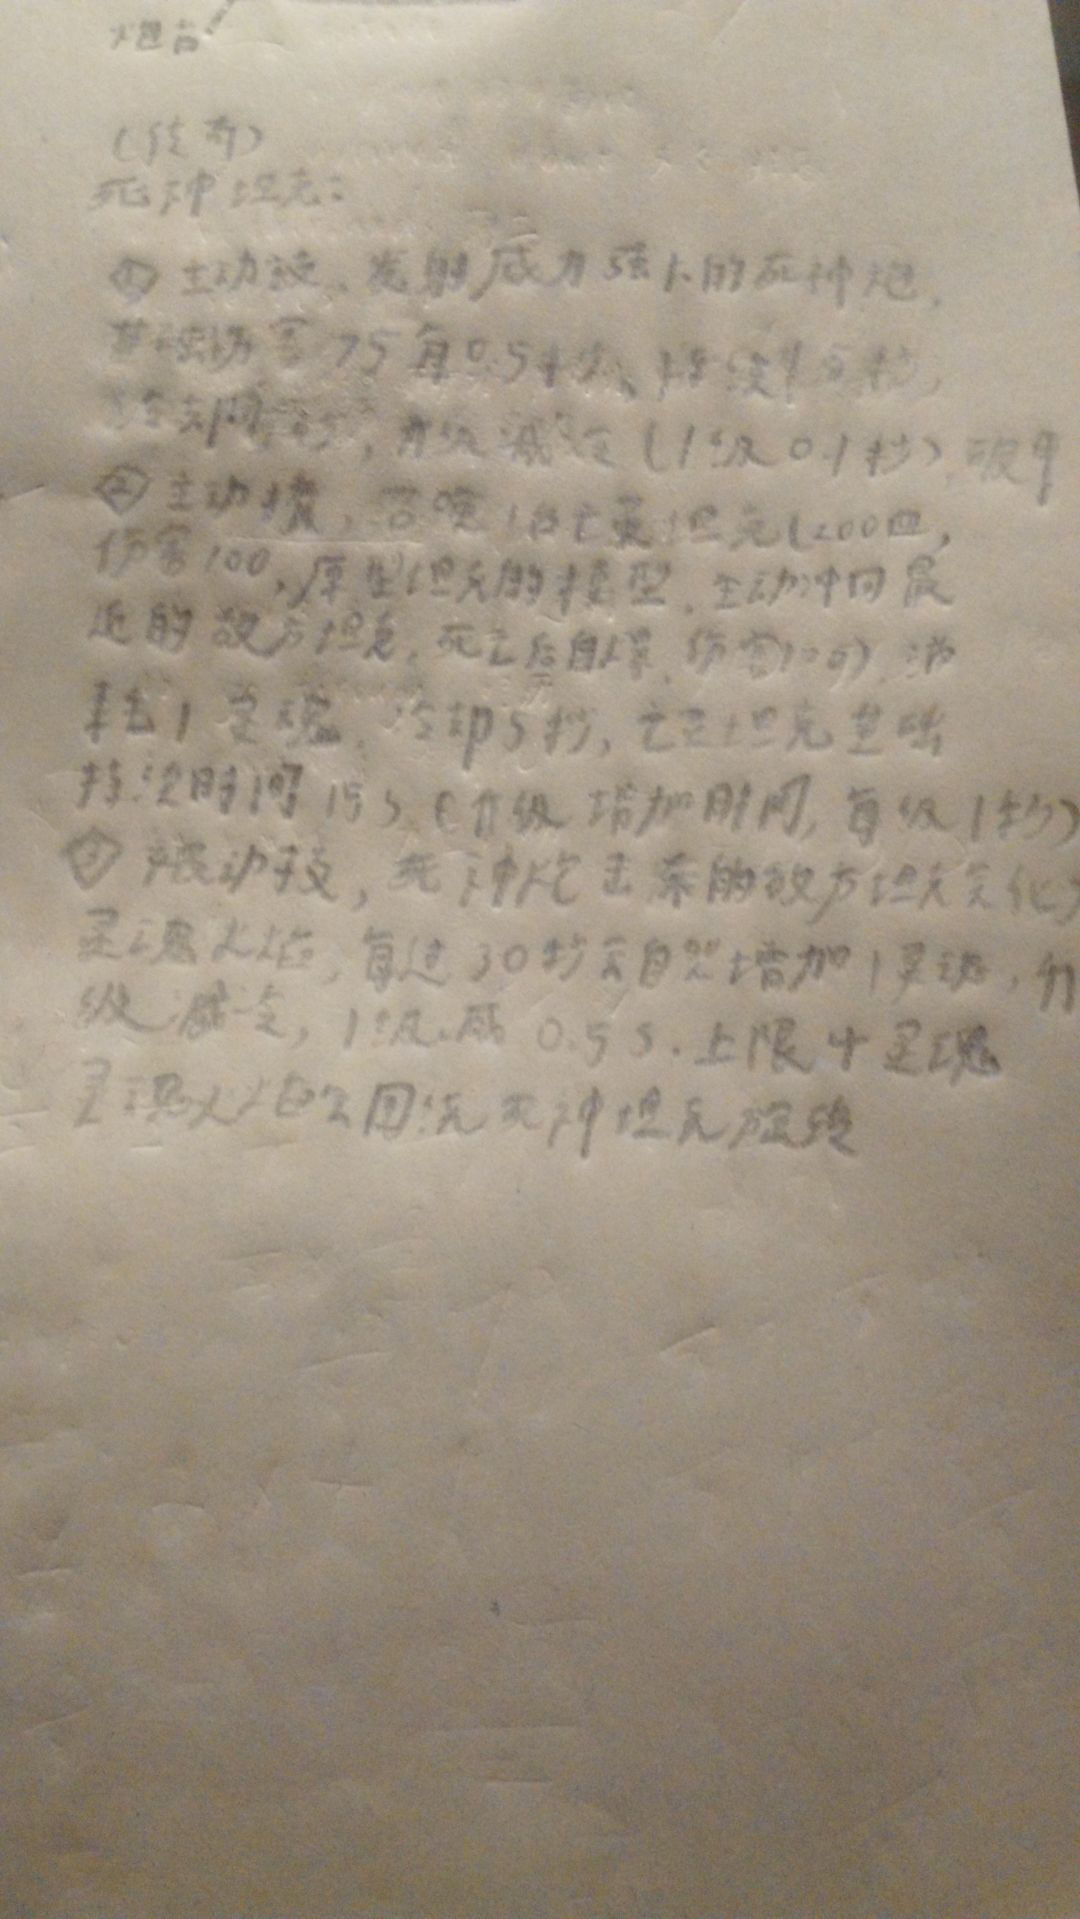 炮台
(传奇)
死神坦克:
① 主动技、发射威力强大的死神炮,
基础伤害75每0.5秒、持续 秒,
冷却 ,升级减 (1级0.1秒)
② 主动技,召唤1台亡灵坦克(200血,
伤害100,原型坦克的模型、主动冲向最
近的敌方坦克,死亡后自爆,伤害100),消
耗1灵魂、冷却5秒,亡灵坦克基础
持续时间15s(升级增加时间,每级1秒)
③ 被动技,死神炮击杀的敌方坦克会化为
灵魂火焰,每过30秒会自然增加1灵魂,升
级减 ,1级减0.5s.上限4灵魂
灵魂火焰会围绕死神坦克旋转